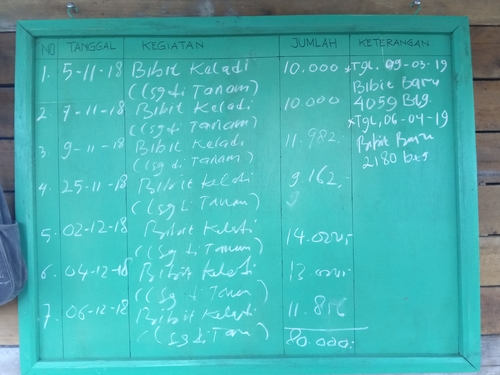 NO TANGGAL KEGIATAN JUMLAH KETERANGAN
1. 5-11-18 Bibit Keladi 10.000 *Tgl. 09-03-19
(lsg di Tanam) Bibit Baru
2. 7-11-18 Bibit Keladi 10.000 4059 Btg.
(lsg di Tanam) *Tgl, 06-04-19
3. 9-11-18 Bibit Keladi 11.982,- Bibit Baru
(lsg di Tanam) 2180 btg
4. 25-11-18 Bibit Keladi 9.162,-
(lsg di Tanam)
5. 02-12-18 Bibit Keladi 14.020,-
(lsg di Tanam)
6. 04-12-18 Bibit Keladi
(lsg di Tanam)
7. 06-12-18 Bibit Keladi 11.816
(lsg di Tanam) 80.000,-